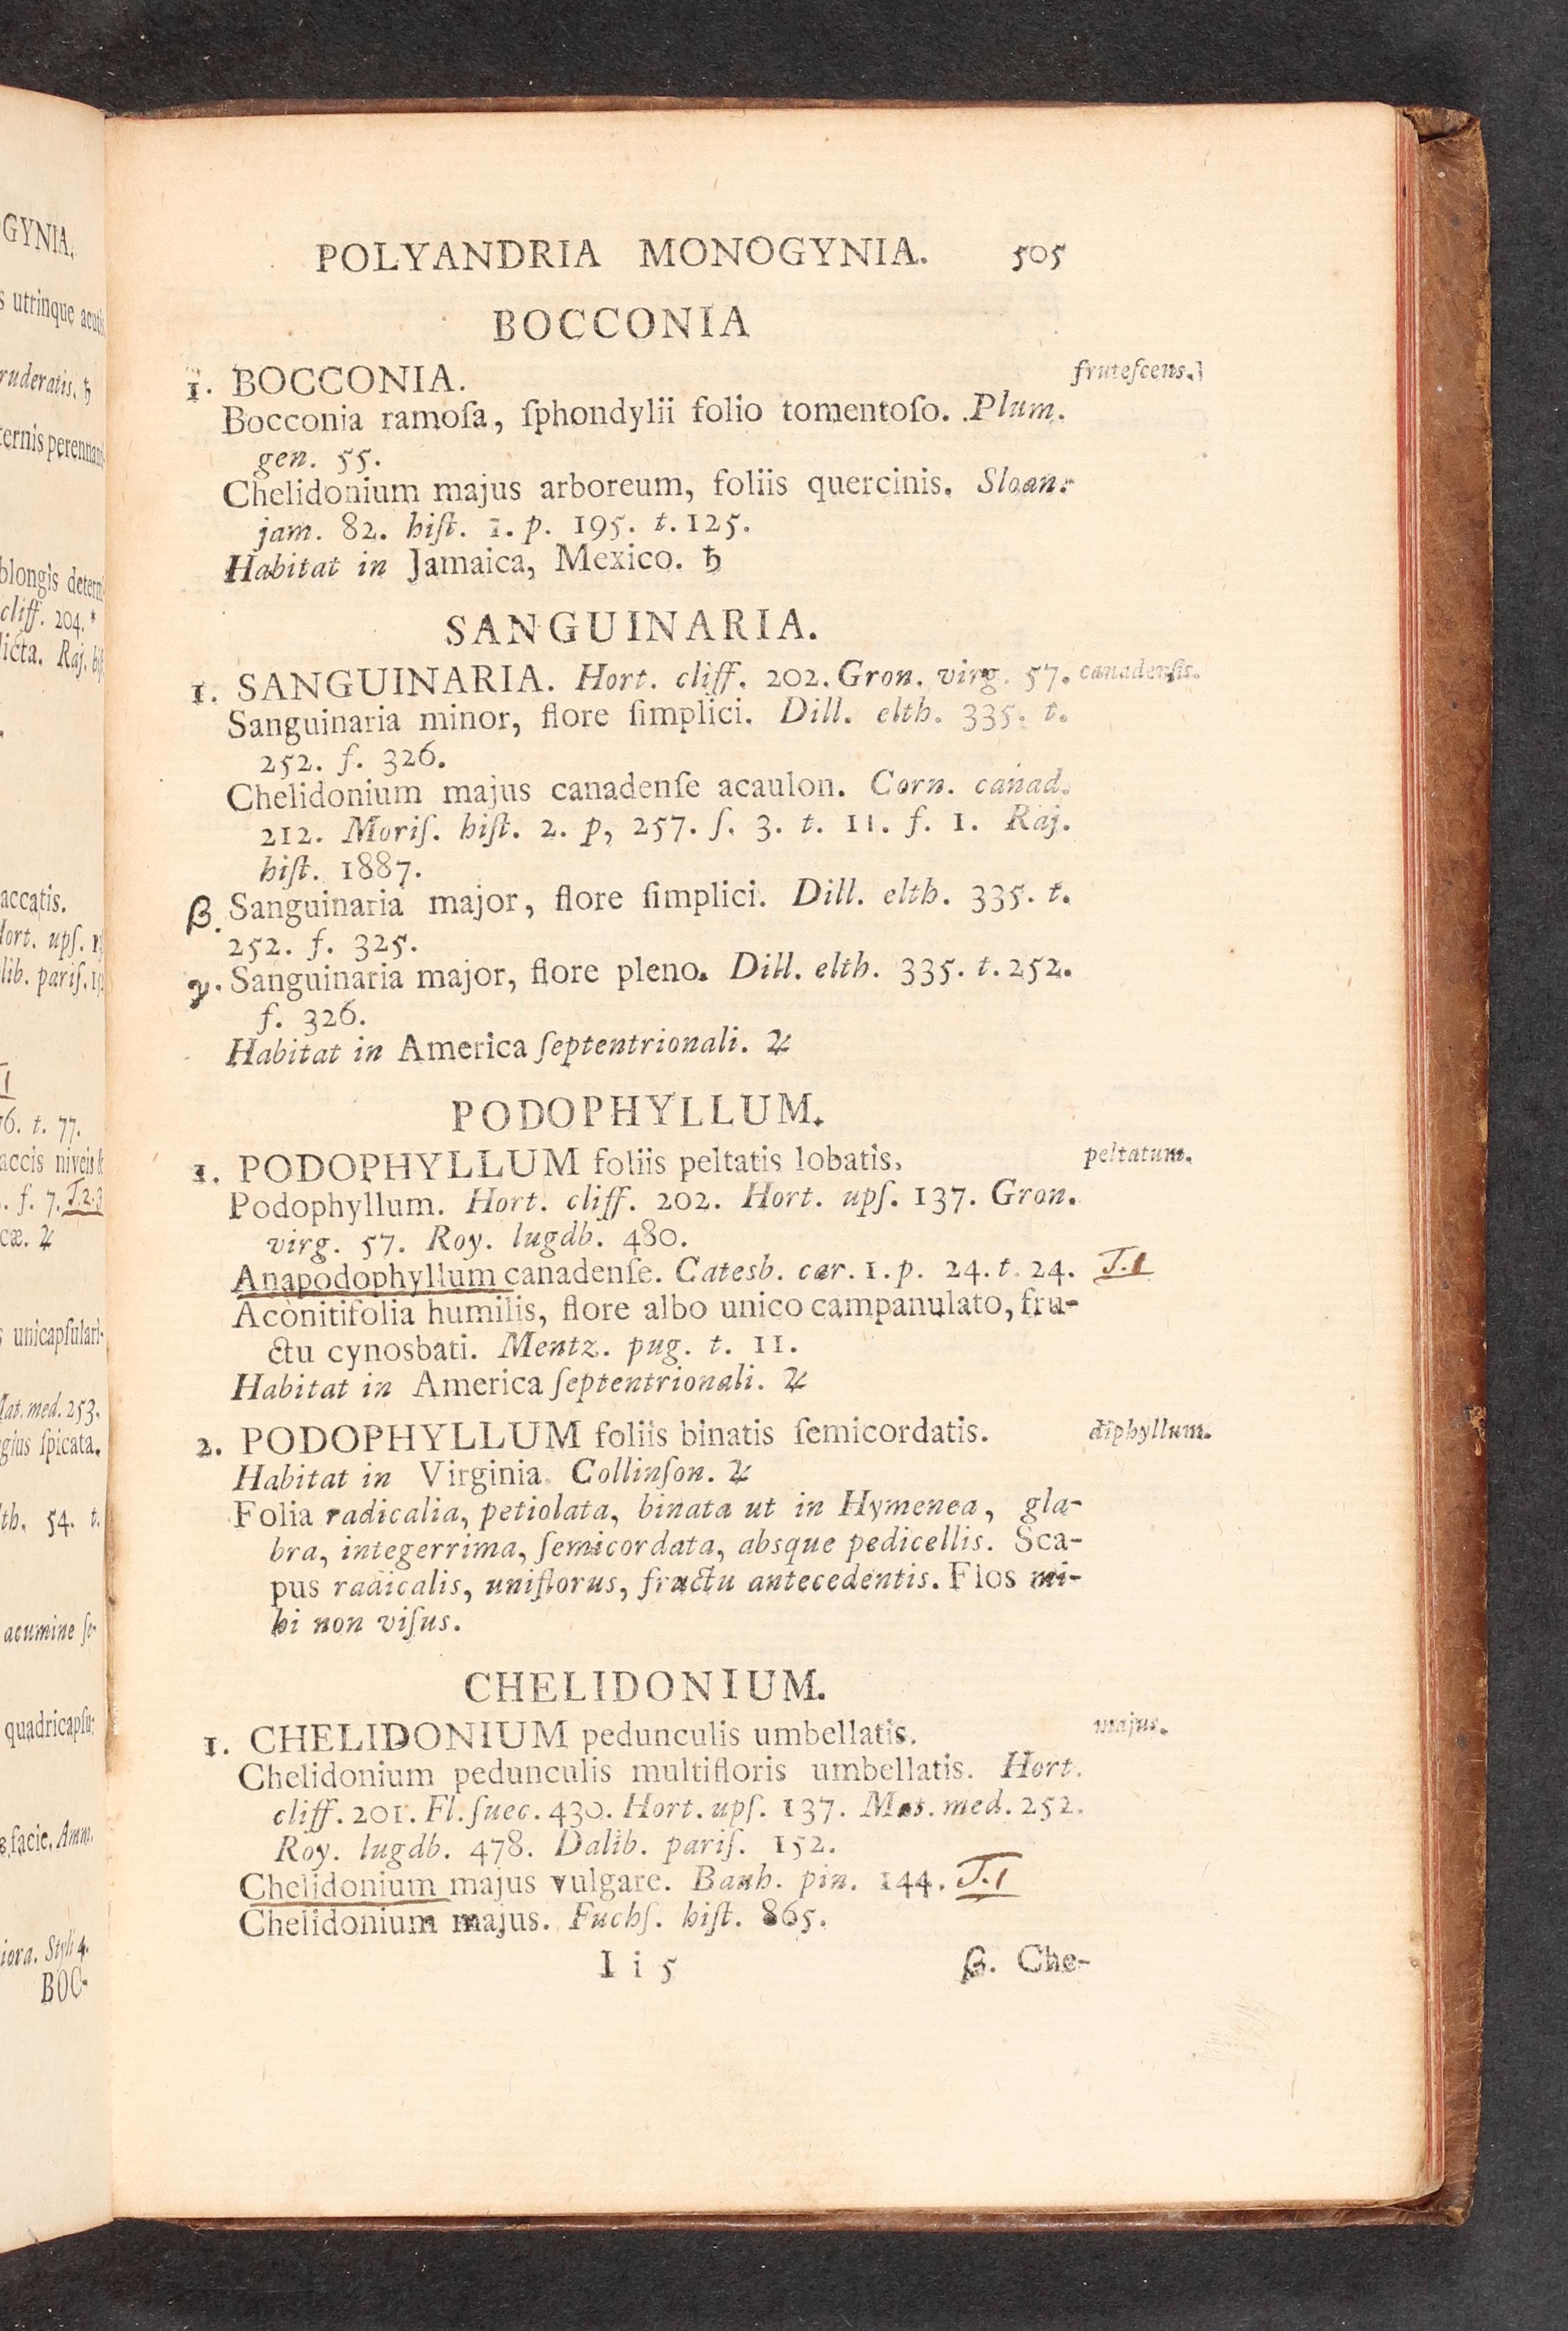 POLYANDRIA MONOGYNIA. 505
BOCCONIA
1. BOCCONIA. fruteſcens.
Bocconia ramoſa, ſphondylii folio tomentoſo. Plum.
gen. 55.
Chelidonium majus arboreum, foliis quercinis. Sloan.
jam. 82. hiſt. 1. p. 195. t. 125.
Habitat in Jamaica, Mexico. ♄
SANGUINARIA.
1. SANGUINARIA. Hort. cliff. 202. Gron. virg. 57. canadenſis.
Sanguinaria minor, flore ſimplici. Dill. elth. 335. t.
252. f. 326.
Chelidonium majus canadenſe acaulon. Corn. canad.
212. Moriſ. hiſt. 2. p, 257. ſ. 3. t. 11. f. 1. Raj.
hiſt. 1887.
β. Sanguinaria major, flore ſimplici. Dill. elth. 335. t.
252. f. 325.
γ. Sanguinaria major, flore pleno. Dill. elth. 335. t. 252.
f. 326.
Habitat in America ſeptentrionali. ♃
PODOPHYLLUM.
1. PODOPHYLLUM foliis peltatis lobatis. peltatum.
Podophyllum. Hort. cliff. 202. Hort. upſ. 137. Gron.
virg. 57. Roy. lugdb. 480.
Anapodophyllum canadenſe. Catesb. car. 1. p. 24. t. 24. T.1
Aconitifolia humilis, flore albo unico campanulato, fru-
ctu cynosbati. Mentz. pug. t. 11.
Habitat in America ſeptentrionali. ♃
2. PODOPHYLLUM foliis binatis ſemicordatis. diphyllum.
Habitat in Virginia. Collinſon. ♃
Folia radicalia, petiolata, binata ut in Hymenea, gla-
bra, integerrima, ſemicordata, absque pedicellis. Sca-
pus radicalis, uniflorus, fructu antecedentis. Flos mi-
hi non viſus.
CHELIDONIUM.
1. CHELIDONIUM pedunculis umbellatis. majus.
Chelidonium pedunculis multifloris umbellatis. Hort.
cliff. 201. Fl. ſuec. 430. Hort. upſ. 137. Mat. med. 252.
Roy. lugdb. 478. Dalib. pariſ. 152.
Chelidonium majus vulgare. Bauh. pin. 144. T.1
Chelidonium majus. Fuchſ. hiſt. 865.
I i 5 β. Che-